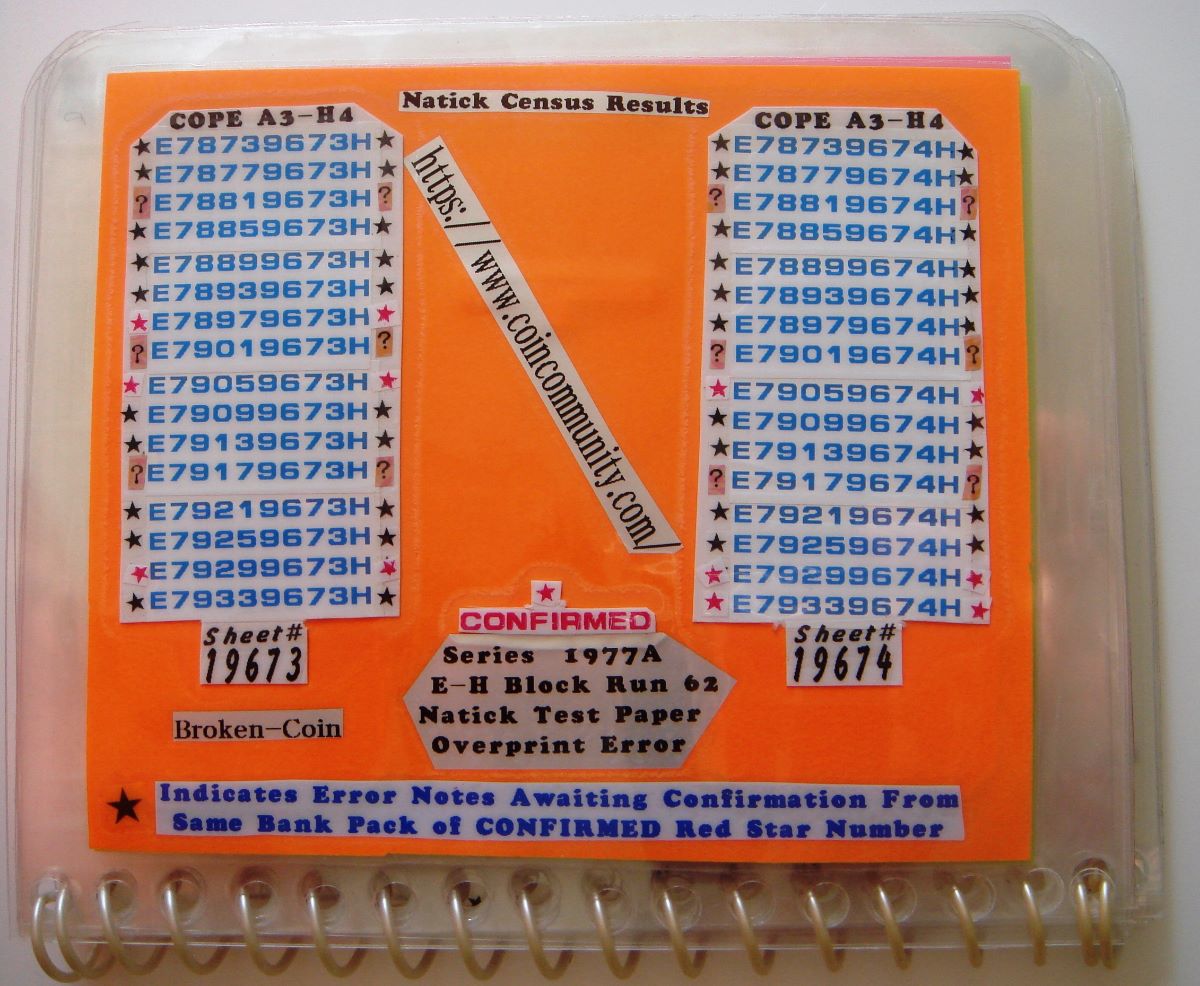 Natick Census Results
COPE A3-H4
★E78739673H★
★E78779673H★
?E78819673H?
★E78859673H★
★E78899673H★
★E78939673H★
★E78979673H★
?E79019673H?
★E79059673H★
★E79099673H★
★E79139673H★
?E79179673H?
★E79219673H★
★E79259673H★
★E79299673H★
★E79339673H★
Sheet#
19673
Broken-Coin
https://www.coincommunity.com/
COPE A3-H4
★E78739674H★
★E78779674H★
?E78819674H?
★E78859674H★
★E78899674H★
★E78939674H★
★E78979674H★
?E79019674H?
★E79059674H★
★E79099674H★
★E79139674H★
?E79179674H?
★E79219674H★
★E79259674H★
★E79299674H★
★E79339674H★
Sheet#
19674
★
CONFIRMED
Series 1977A
E-H Block Run 62
Natick Test Paper
Overprint Error
★ Indicates Error Notes Awaiting Confirmation From
Same Bank Pack of CONFIRMED Red Star Number